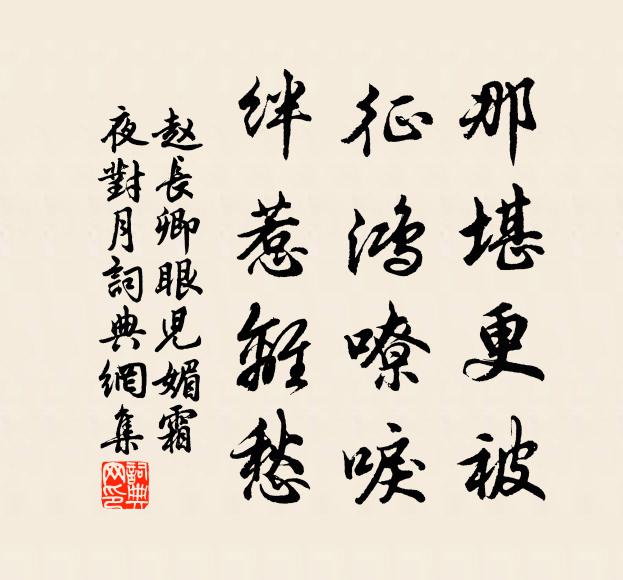 那堪更被
征鸿嘹唳
绊惹離愁
赵長卿眼兒媚霜
夜對月詞典網集
詞典
网印